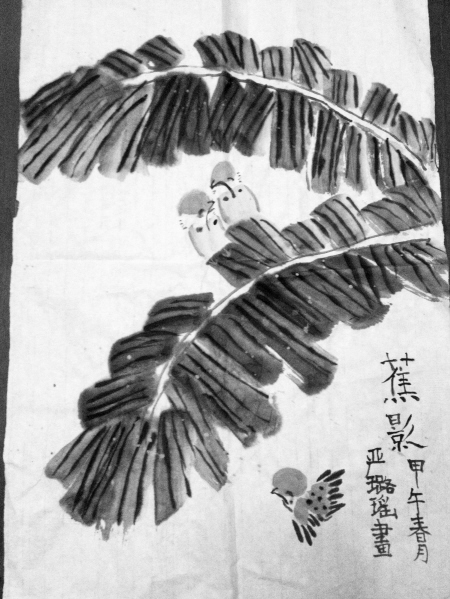 蕉影
甲午春月
亚璐瑶畫